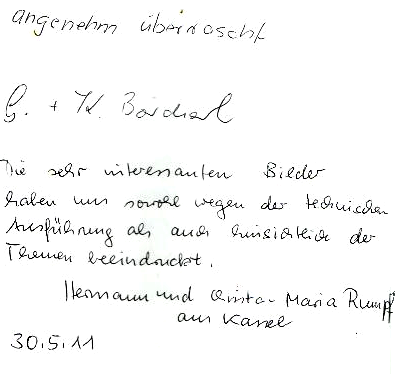 angenehm überrascht
G. + K. Borchert
Die sehr interessanten Bilder
haben uns sowohl wegen der technischen
Ausführung als auch hinsichtlich der
Themen beeindruckt.
Hermann und Christa-Maria Rumpf
aus Kassel
30.5.11